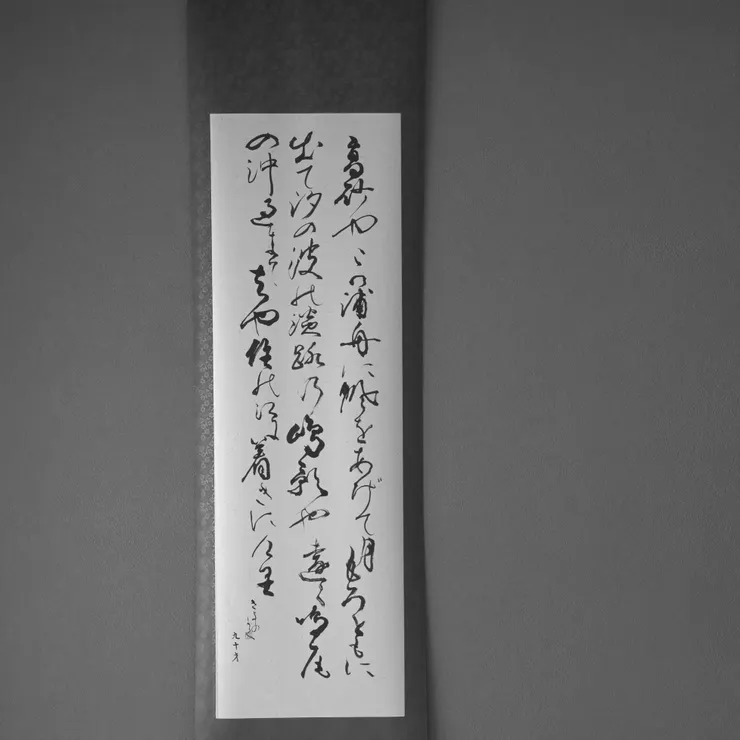 高砂や此浦舟に帆をあげて月もろともに
出て汐の波の淡路の嶋影や遠く鳴尾
の沖過ましてはや住の江に着きにけり
九十才